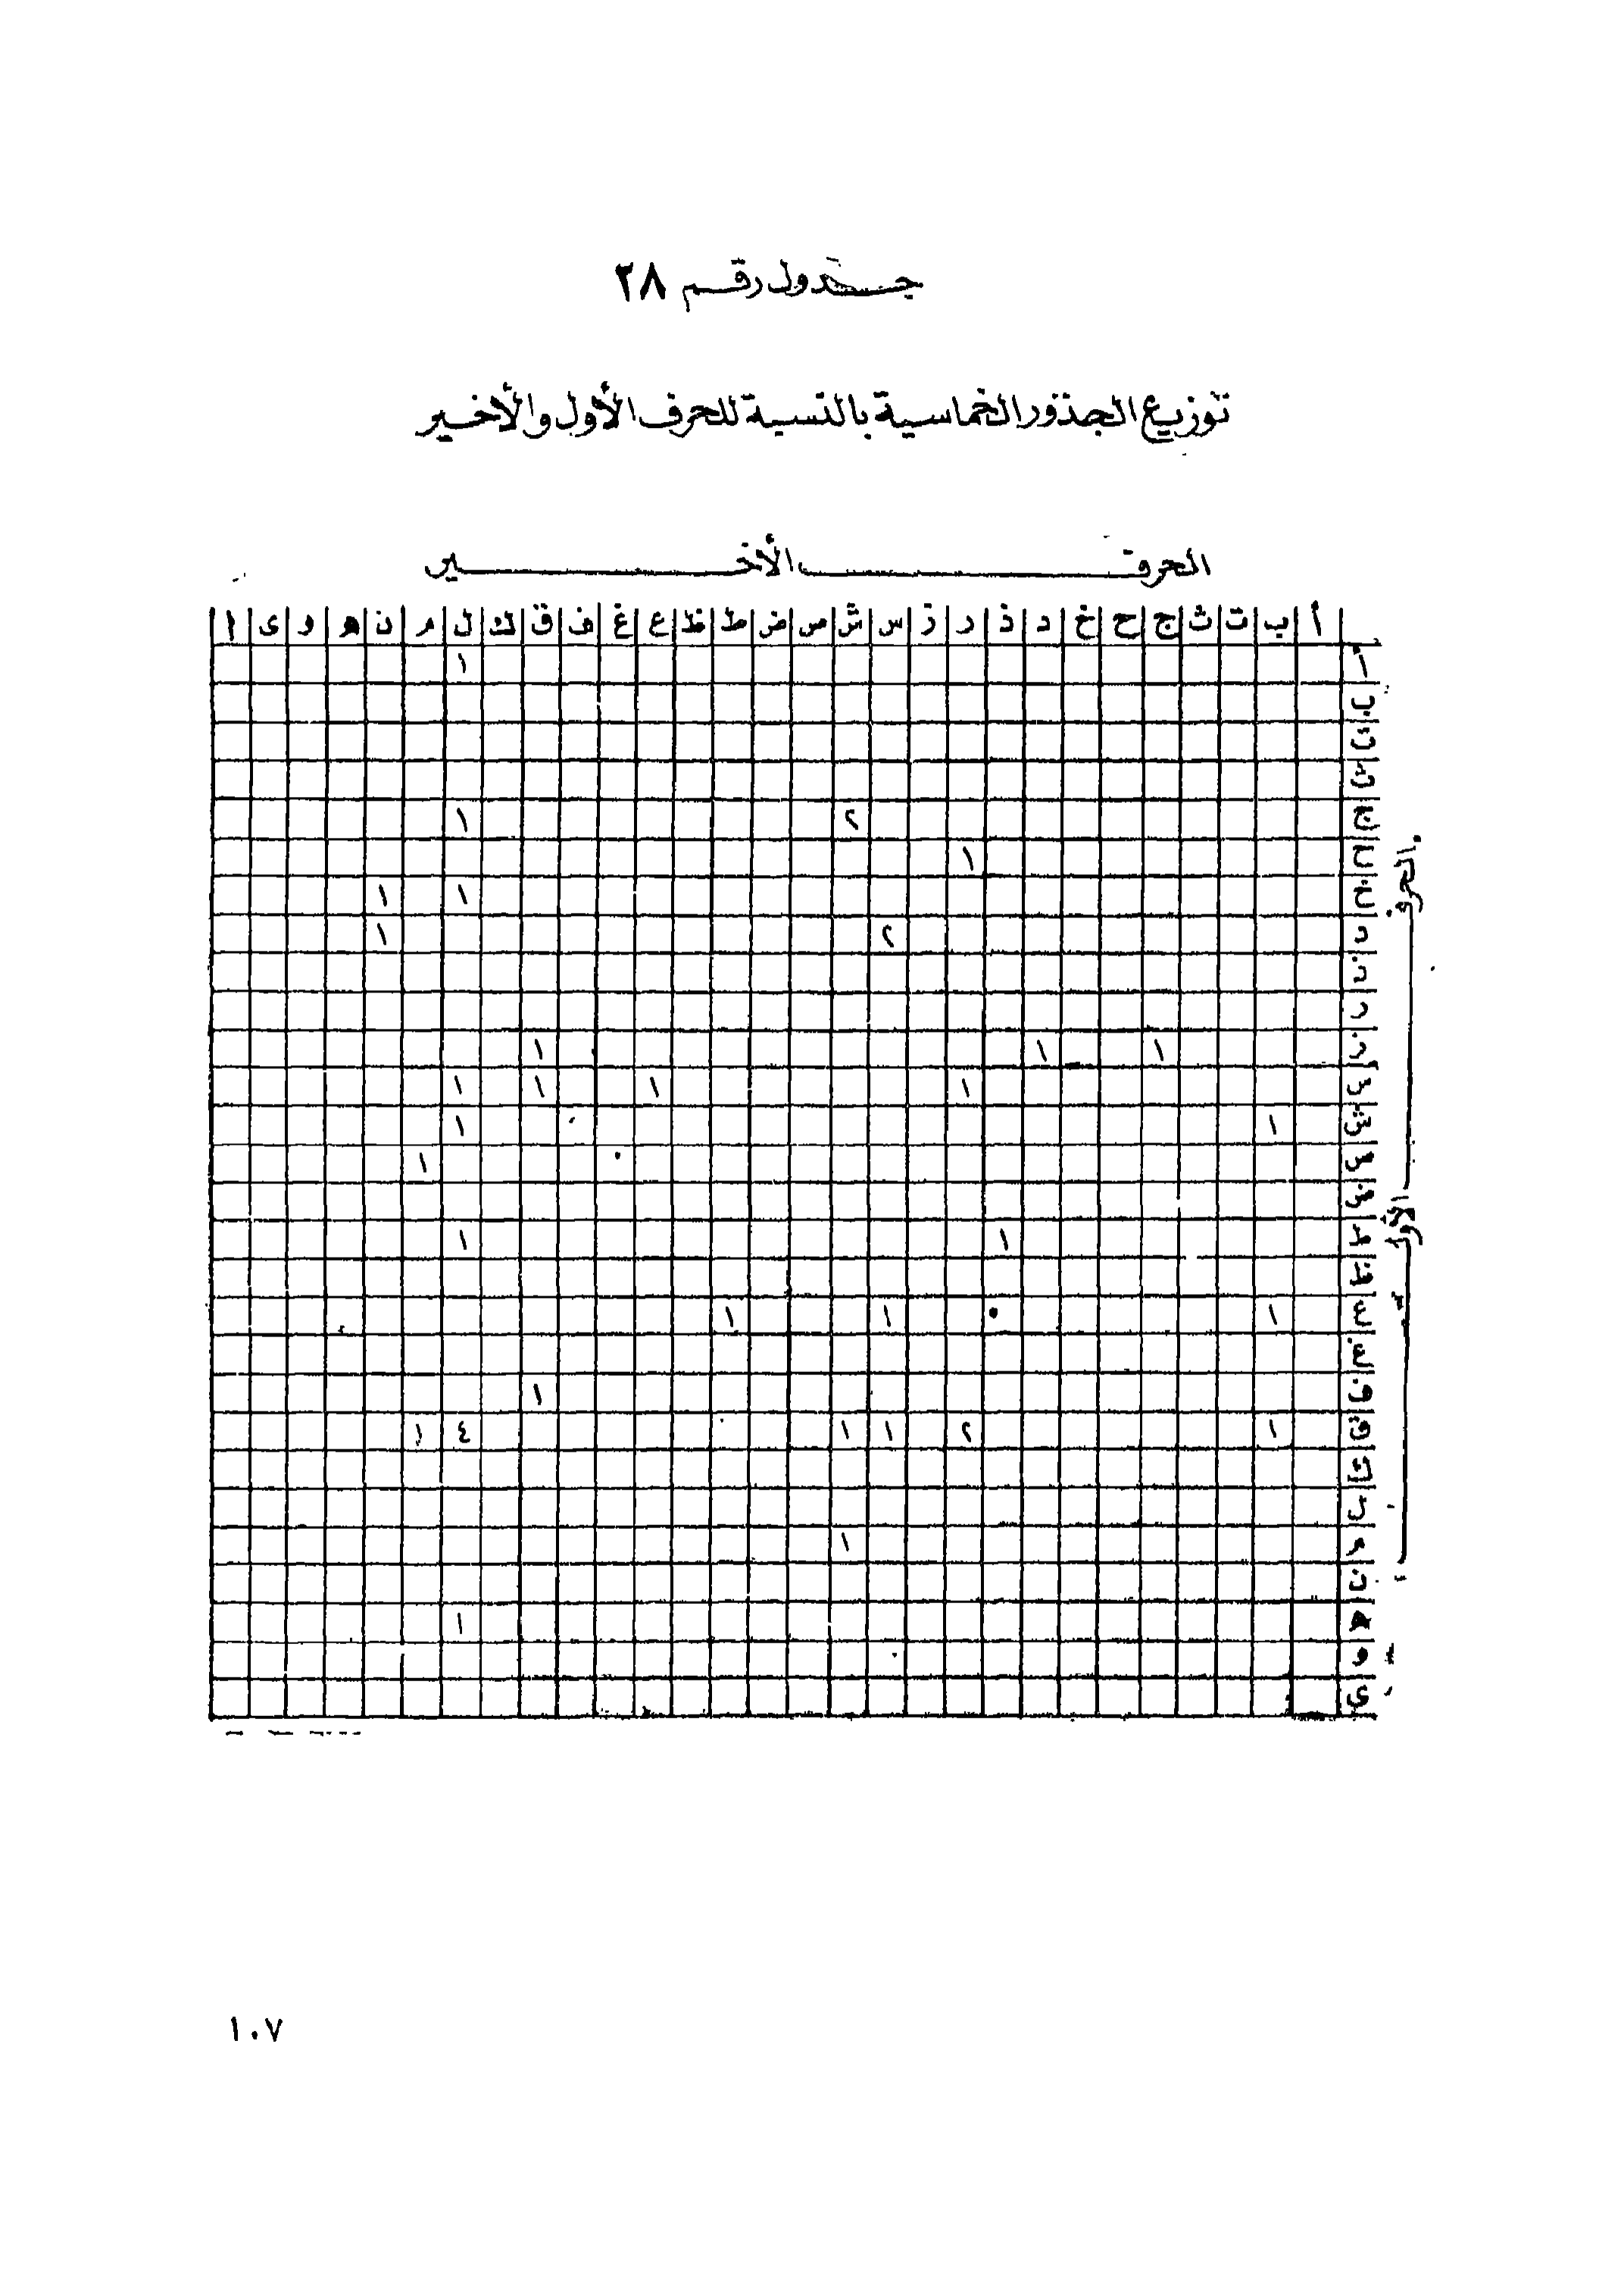 جدول رقم ٢٨
توزيع الجذور الخماسية بالنسبة للحرف الأول والأخير
الحرف الأخير
أ ب ت ث ج ح خ د ذ ر ز س ش ص ض ط ظ ع غ ف ق ك ل م ن ه و ى ا
الحرف الأول
أ ١
ب
ت
ث
ج ٢ ١
ح ١
خ ١ ١
د ٢ ١
ذ
ر
ز ١ ١ ١
س ١ ١ ١ ١
ش ١ ١
ص ١
ض
ط ١ ١
ظ
ع ١ ١ ١
غ
ف ١
ق ١ ٢ ١ ١ ٤ ١
ك
ل
م ١
ن
ه ١
و
ي
١٠٧